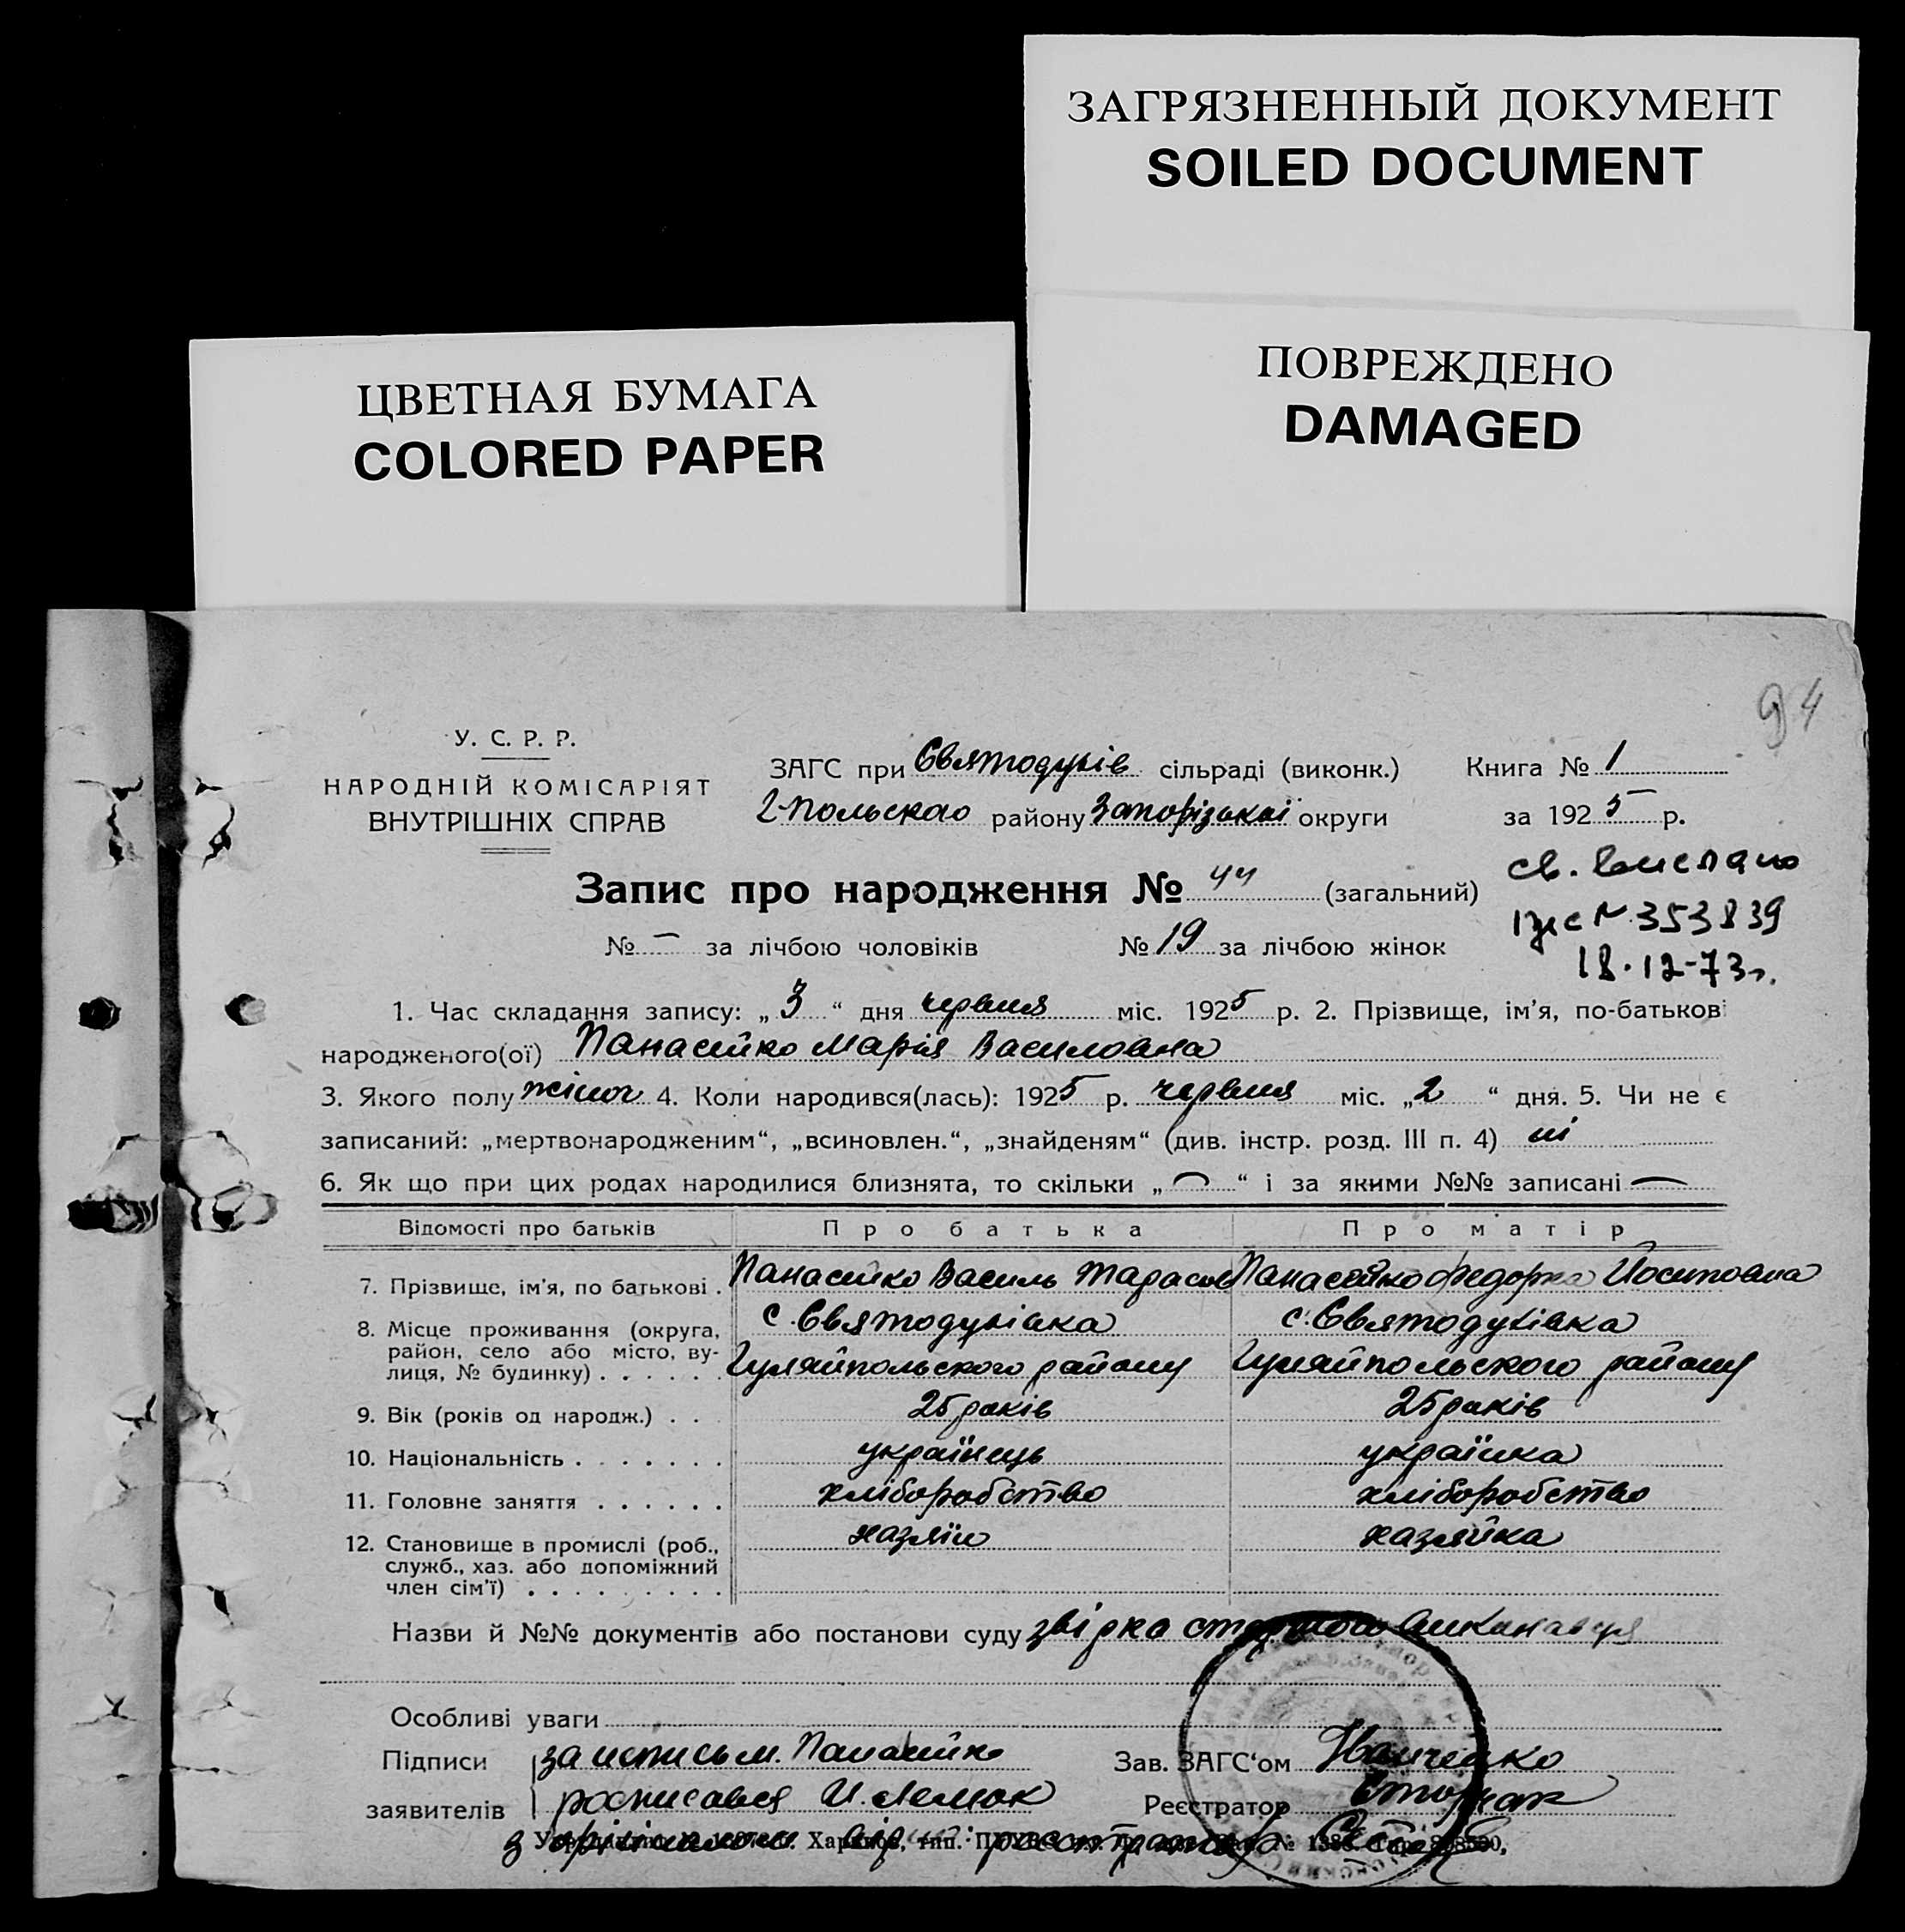 ЗАГРЯЗНЕННЫЙ ДОКУМЕНТ
SOILED DOCUMENT
ЦВЕТНАЯ БУМАГА
COLORED PAPER
ПОВРЕЖДЕНО
DAMAGED
94
У. С. Р. Р.
НАРОДНІЙ КОМІСАРІЯТ
ВНУТРІШНІХ СПРАВ
ЗАГС при Святодухів сільраді (виконк.) Книга № 1
Г-Польского району Запорізької округи за 1925 р.
Запис про народження № 44 (загальний)
№ – за лічбою чоловіків № 19 за лічбою жінок
св.
№ 353839
18.12-73г.
1. Час складання запису: „3“ дня червня міс. 1925 р. 2. Прізвище, ім'я, по-батькові
народженого(ої) Панасейко Марія Василовна
3. Якого полу жіноч 4. Коли народився(лась): 1925 р. червня міс. „2“ дня. 5. Чи не є
записаний: „мертвонародженим“, „всиновлен.“, „знайденям“ (див. інстр. розд. III п. 4) ні
6. Як що при цих родах народилися близнята, то скільки „—“ і за якими №№ записані —
Відомості про батьків Про батька Про матір
7. Прізвище, ім'я, по батькові . Панасейко Василь Тарасов Панасейко Федорка Йосиповна
8. Місце проживання (округа, район, село або місто, вулиця, № будинку) . . . . . . с. Святодухівка Гуляйпольського району с. Святодухівка Гуляйпольського району
9. Вік (років од народж.) . . 25 років 25 років
10. Національність . . . . . . . українець українка
11. Головне заняття . . . . . . хліборобство хліборобство
12. Становище в промислі (роб., служб., хаз. або допоміжний член сім'ї) . . . . . . . . . хазяїн хазяйка
Назви й №№ документів або постанови суду звірка старого виконавця
Особливі уваги
Підписи заявителів за неписьм. Панасейко
росписався И. Лемок
Зав. ЗАГС'ом Иванченко
Реєстратор
З орігіналом Харьков, тип.